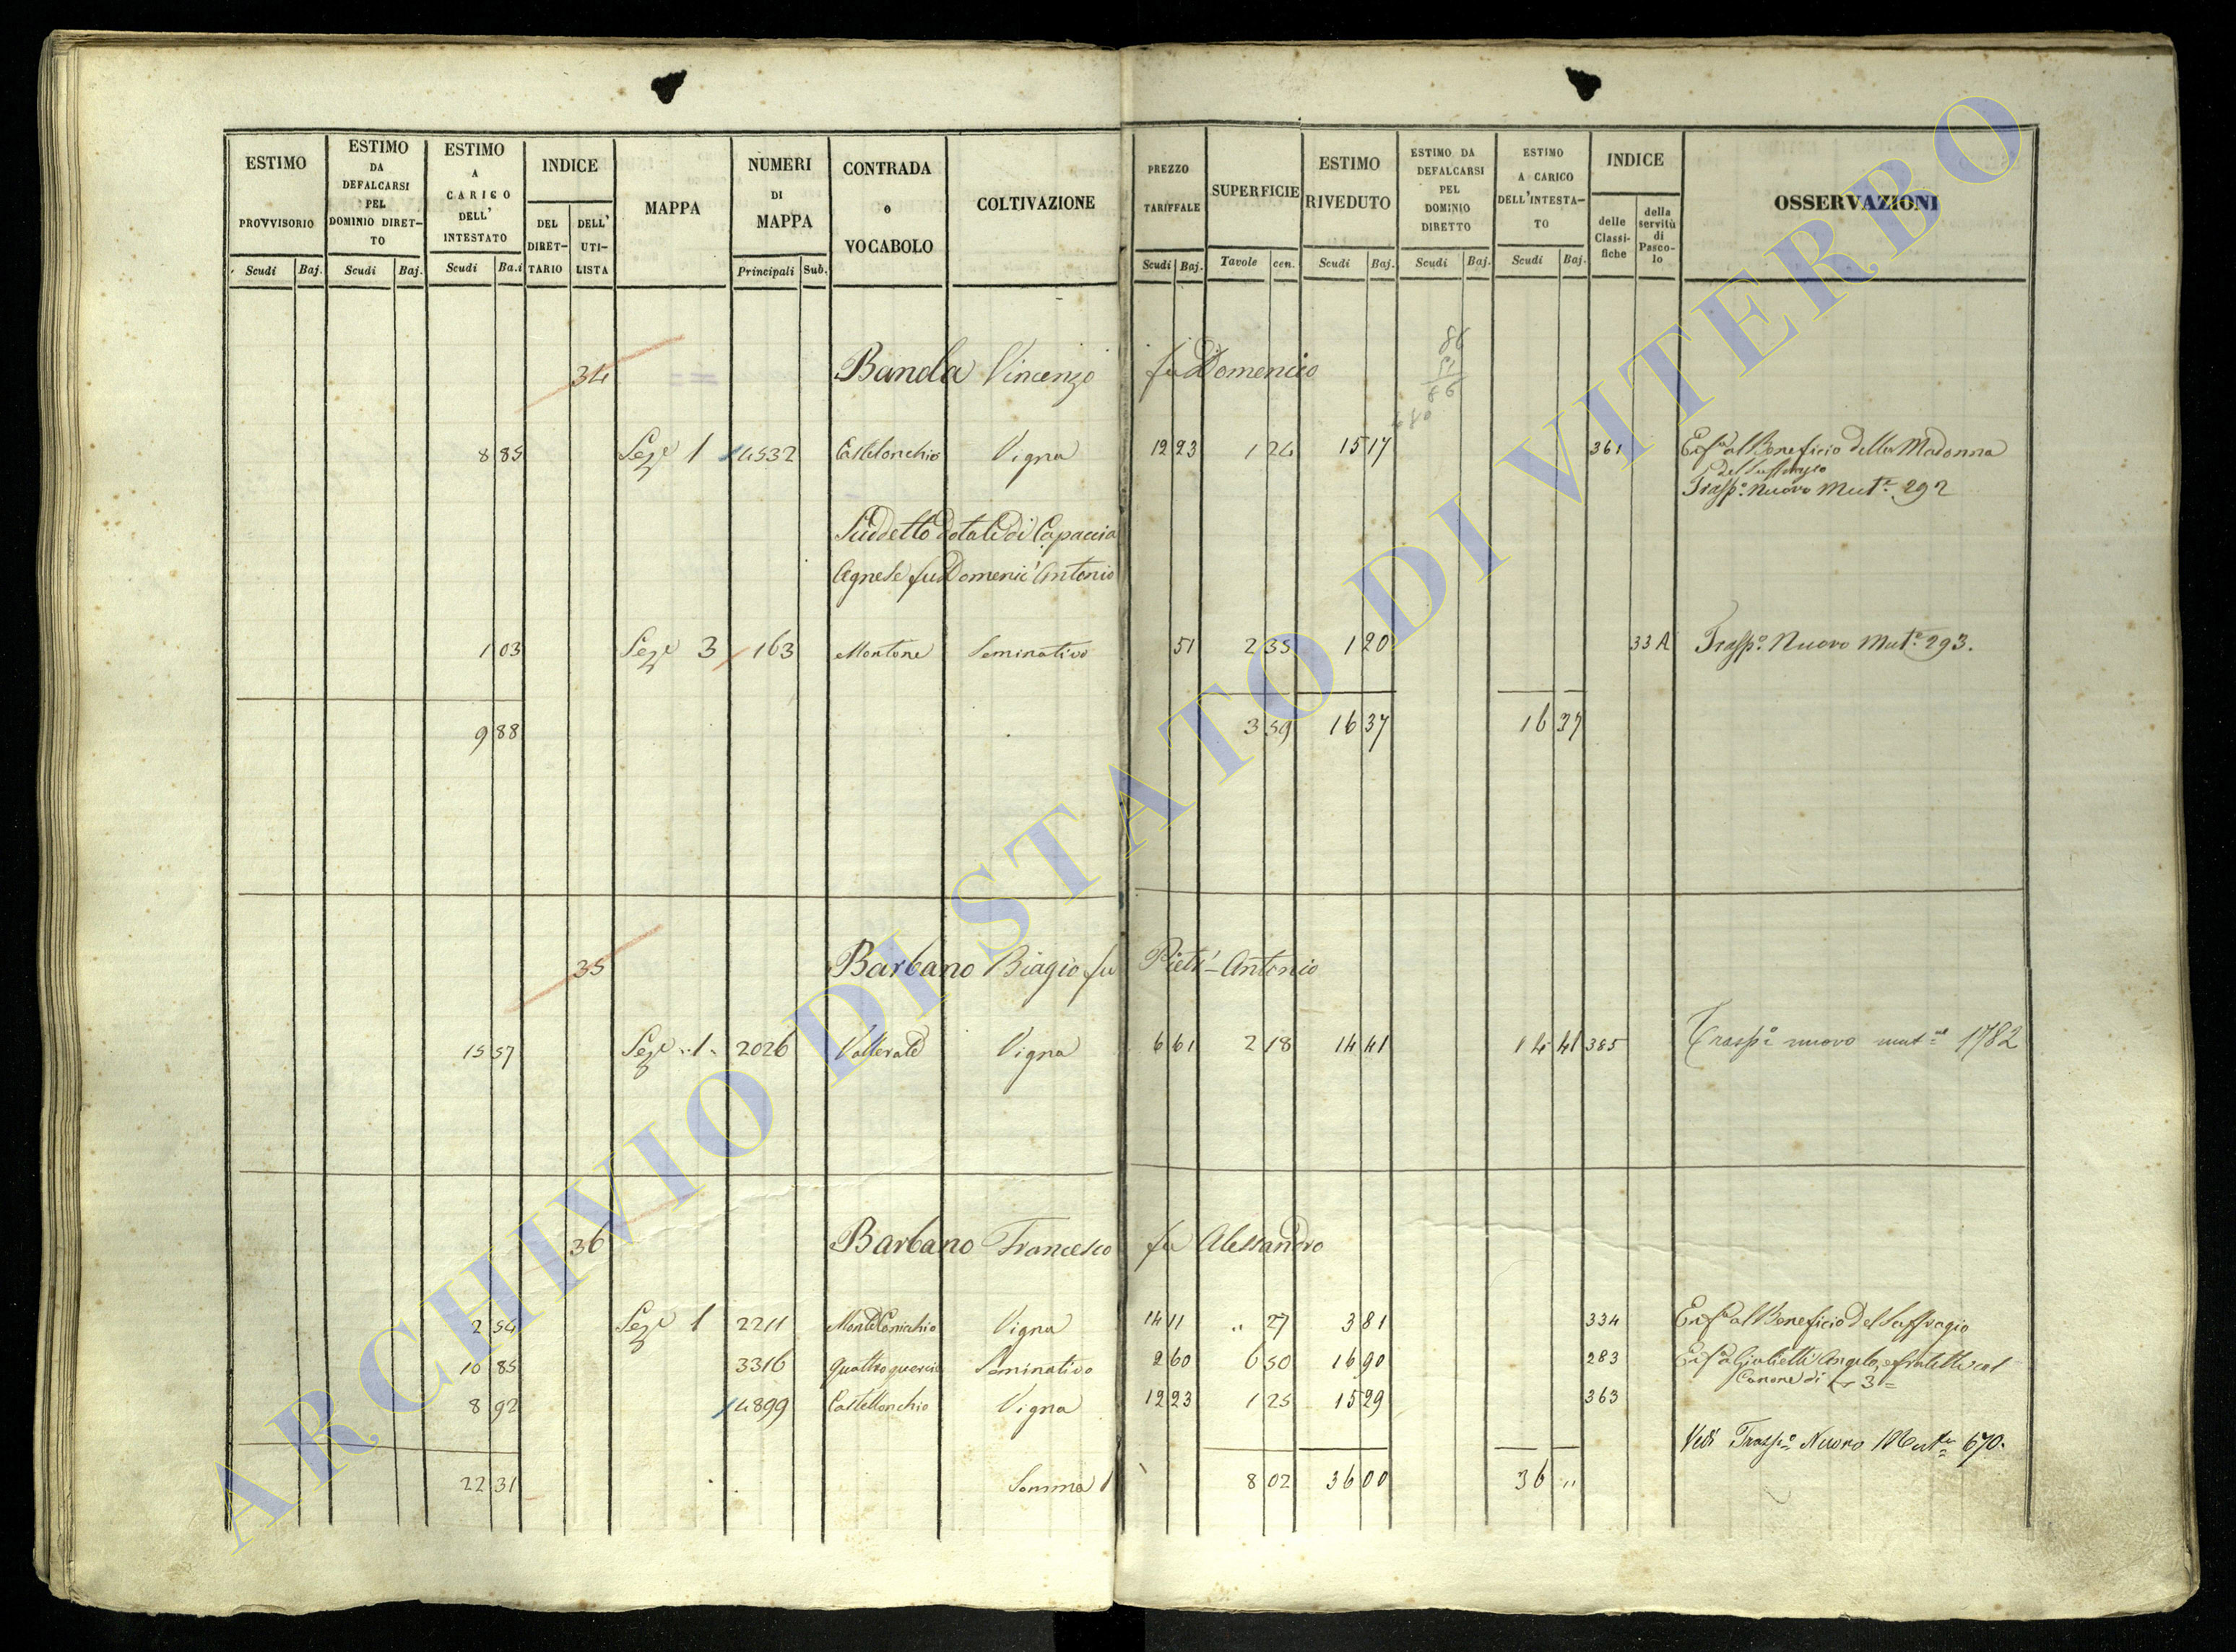 ESTIMO PROVVISORIO Scudi Baj.
ESTIMO DA DEFALCARSI PEL DOMINIO DIRETTO Scudi Baj.
ESTIMO A CARICO DELL' INTESTATO Scudi Ba.i
INDICE DEL DIRETTARIO DELL' UTILISTA
MAPPA
NUMERI DI MAPPA Principali Sub.
CONTRADA o VOCABOLO
COLTIVAZIONE
PREZZO TARIFFALE Scudi Baj.
SUPERFICIE Tavole cen.
ESTIMO RIVEDUTO Scudi Baj.
ESTIMO DA DEFALCARSI PEL DOMINIO DIRETTO Scudi Baj.
ESTIMO A CARICO DELL'INTESTATO Scudi Baj.
INDICE delle Classifiche della servitù di Pascolo
OSSERVAZIONI
34 Banda Vincenzo fu Domenico
8 85 Seze 1 4532 Castelonchio Vigna 12 23 1 24 15 17 361 Enfa al Beneficio della Madonna
del Suffragio
Traspo. Nuovo Mute. 292
Suddetto Dotale di Capaccia
Agnese fu Domenic'Antonio
1 03 Seze 3 163 Montone Seminativo 51 2 35 1 20 33 A Traspo. Nuovo Mute. 293.
9 88 3 59 16 37 16 37
35 Barbano Biagio fu Pietr'Antonio
15 57 Seze 1 2026 Vallerate Vigna 6 61 2 18 14 41 14 41 385 Traspo nuovo mut 1782
36 Barbano Francesco fu Alessandro
2 54 Seze 1 2211 Monte Conicchio Vigna 14 11 " 27 3 81 334 Enfa al Beneficio del Suffragio
10 85 3316 Quattro quercie Seminativo 2 60 6 50 16 90 283 Enfa a Giulietti Angelo, e fratelli col
Canone di 3
8 92 4899 Castellonchio Vigna 12 23 1 25 15 29 363
Vedi Traspo Nuovo Mut 670.
22 31 Somma 8 02 36 00 36 "
ARCHIVIO DI STATO DI VITERBO